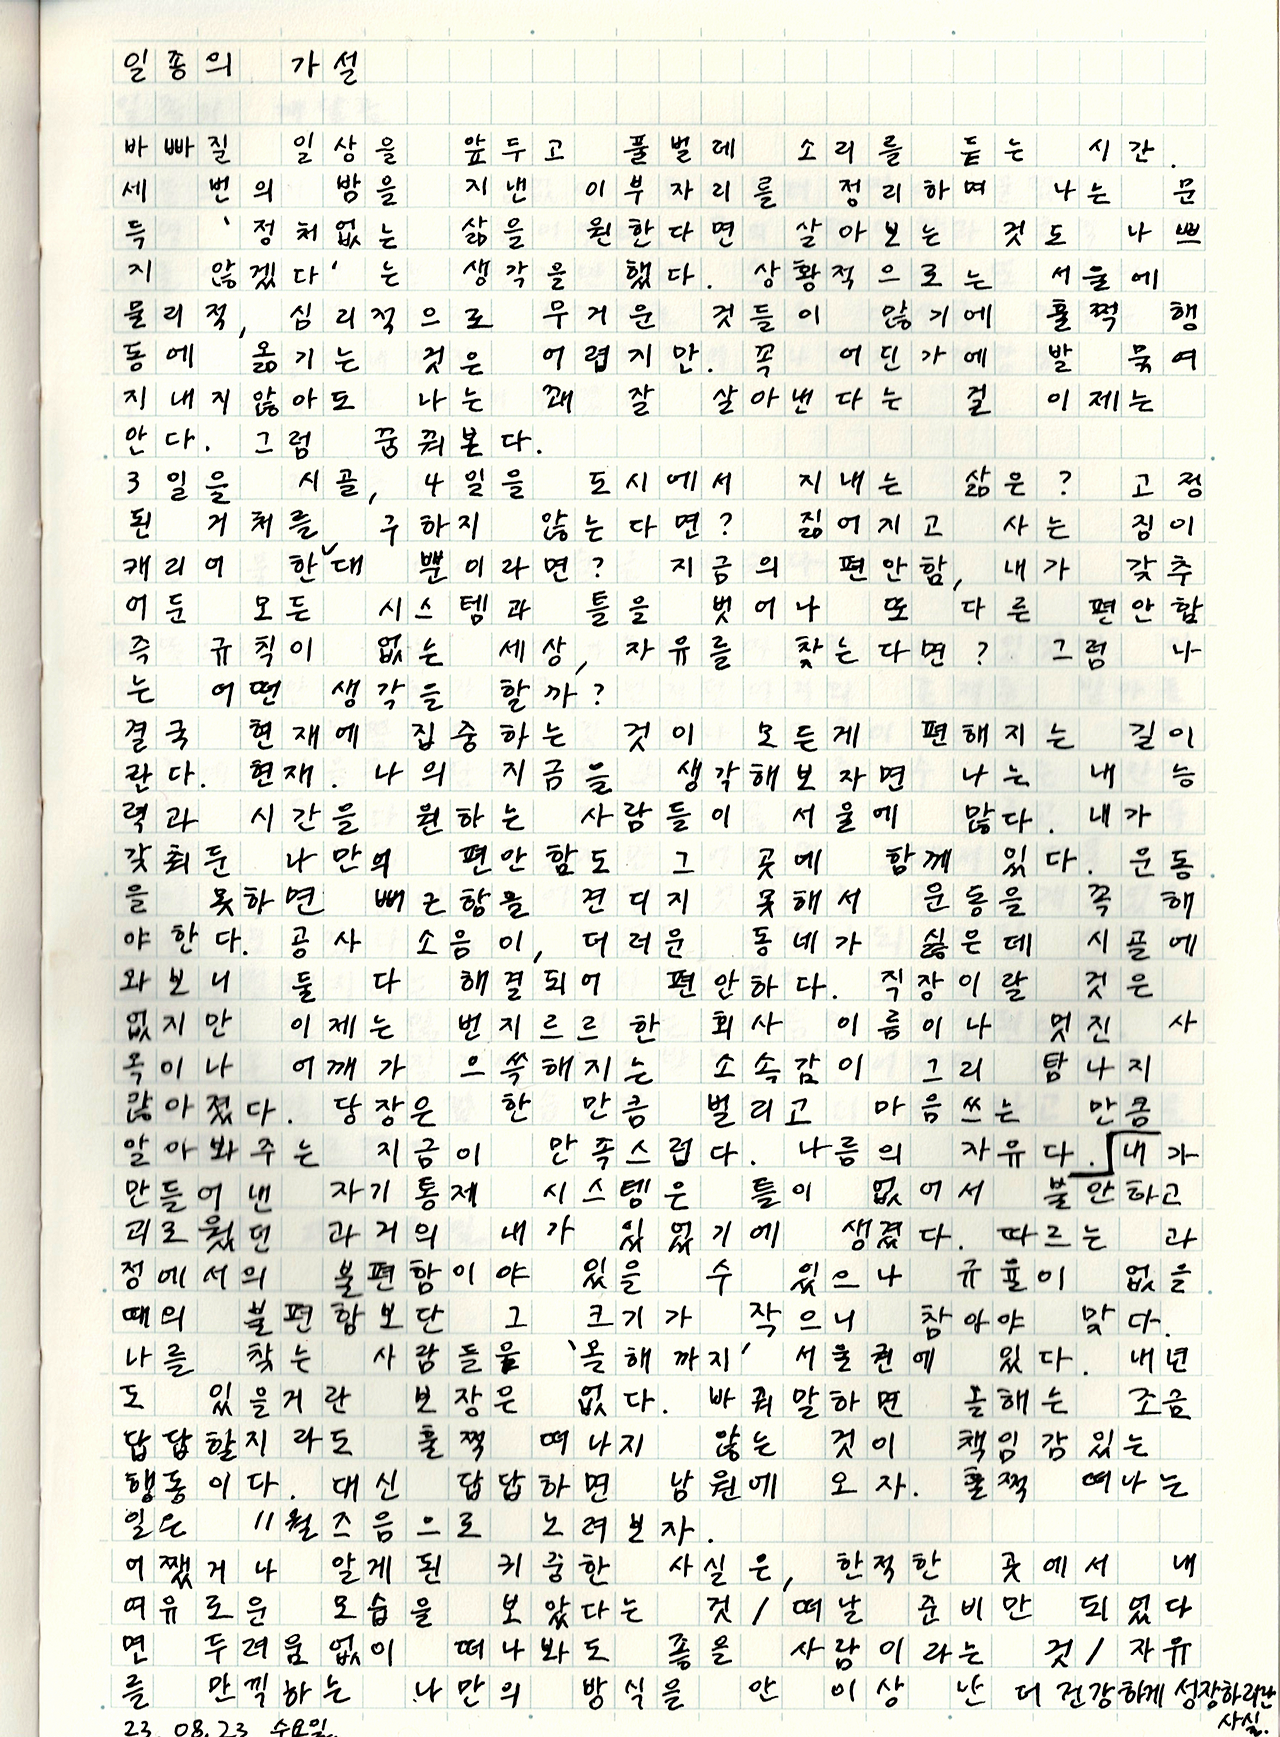 일종의 가설
바빠질 일상을 앞두고 풀벌레 소리를 듣는 시간.
세 번의 밤을 지낸 이부자리를 정리하며 나는 문
득 '정처없는 삶을 원한다면 살아보는 것도 나쁘
지 않겠다' 는 생각을 했다. 상황적으로는 서울에
물리적, 심리적으로 무거운 것들이 많기에 훌쩍 행
동에 옮기는 것은 어렵지만. 꼭 어딘가에 발 묶여
지내지않아도 나는 꽤 잘 살아낸다는 걸 이제는
안다. 그럼 꿈꿔본다.
3일을 시골, 4일을 도시에서 지내는 삶은? 고정
된 거처를 구하지 않는다면? 짊어지고 사는 짐이
캐리어 한 대 뿐이라면? 지금의 편안함, 내가 갖추
어둔 모든 시스템과 틀을 벗어나 또 다른 편안함
즉 규칙이 없는 세상, 자유를 찾는다면? 그럼 나
는 어떤 생각을 할까?
결국 현재에 집중하는 것이 모든게 편해지는 길이
란다. 현재. 나의 지금을 생각해보자면 나는 내 능
력과 시간을 원하는 사람들이 서울에 많다. 내가
갖춰둔 나만의 편안함도 그 곳에 함께 있다. 운동
을 못하면 뻐근함을 견디지 못해서 운동을 꼭 해
야한다. 공사 소음이, 더러운 동네가 싫은데 시골에
와보니 둘 다 해결되어 편안하다. 직장이랄 것은
없지만 이제는 번지르르한 회사 이름이나 멋진 사
옥이나 어깨가 으쓱해지는 소속감이 그리 탐나지
않아졌다. 당장은 한 만큼 벌리고 마음쓰는 만큼
알아봐주는 지금이 만족스럽다. 나름의 자유다. 내가
만들어낸 자기통제 시스템은 틀이 없어서 불안하고
괴로웠던 과거의 내가 있었기에 생겼다. 따르는 과
정에서의 불편함이야 있을 수 있으나 규율이 없을
때의 불편함보단 그 크기가 작으니 참아야 맞다.
나를 찾는 사람들은 '올해까지' 서울권에 있다. 내년
도 있을거란 보장은 없다. 바꿔말하면 올해는 조금
답답할지라도 훌쩍 떠나지 않는 것이 책임감있는
행동이다. 대신 답답하면 남원에 오자. 훌쩍 떠나는
일은 11월즈음으로 노려보자.
어쨌거나 알게된 귀중한 사실은, 한적한 곳에서 내
여유로운 모습을 보았다는 것 / 떠날 준비만 되었다
면 두려움없이 떠나봐도 좋을 사람이라는 것 / 자유
를 만끽하는 나만의 방식을 안 이상 난 더 건강하게 성장하리란
사실.
23. 08. 23 수요일.